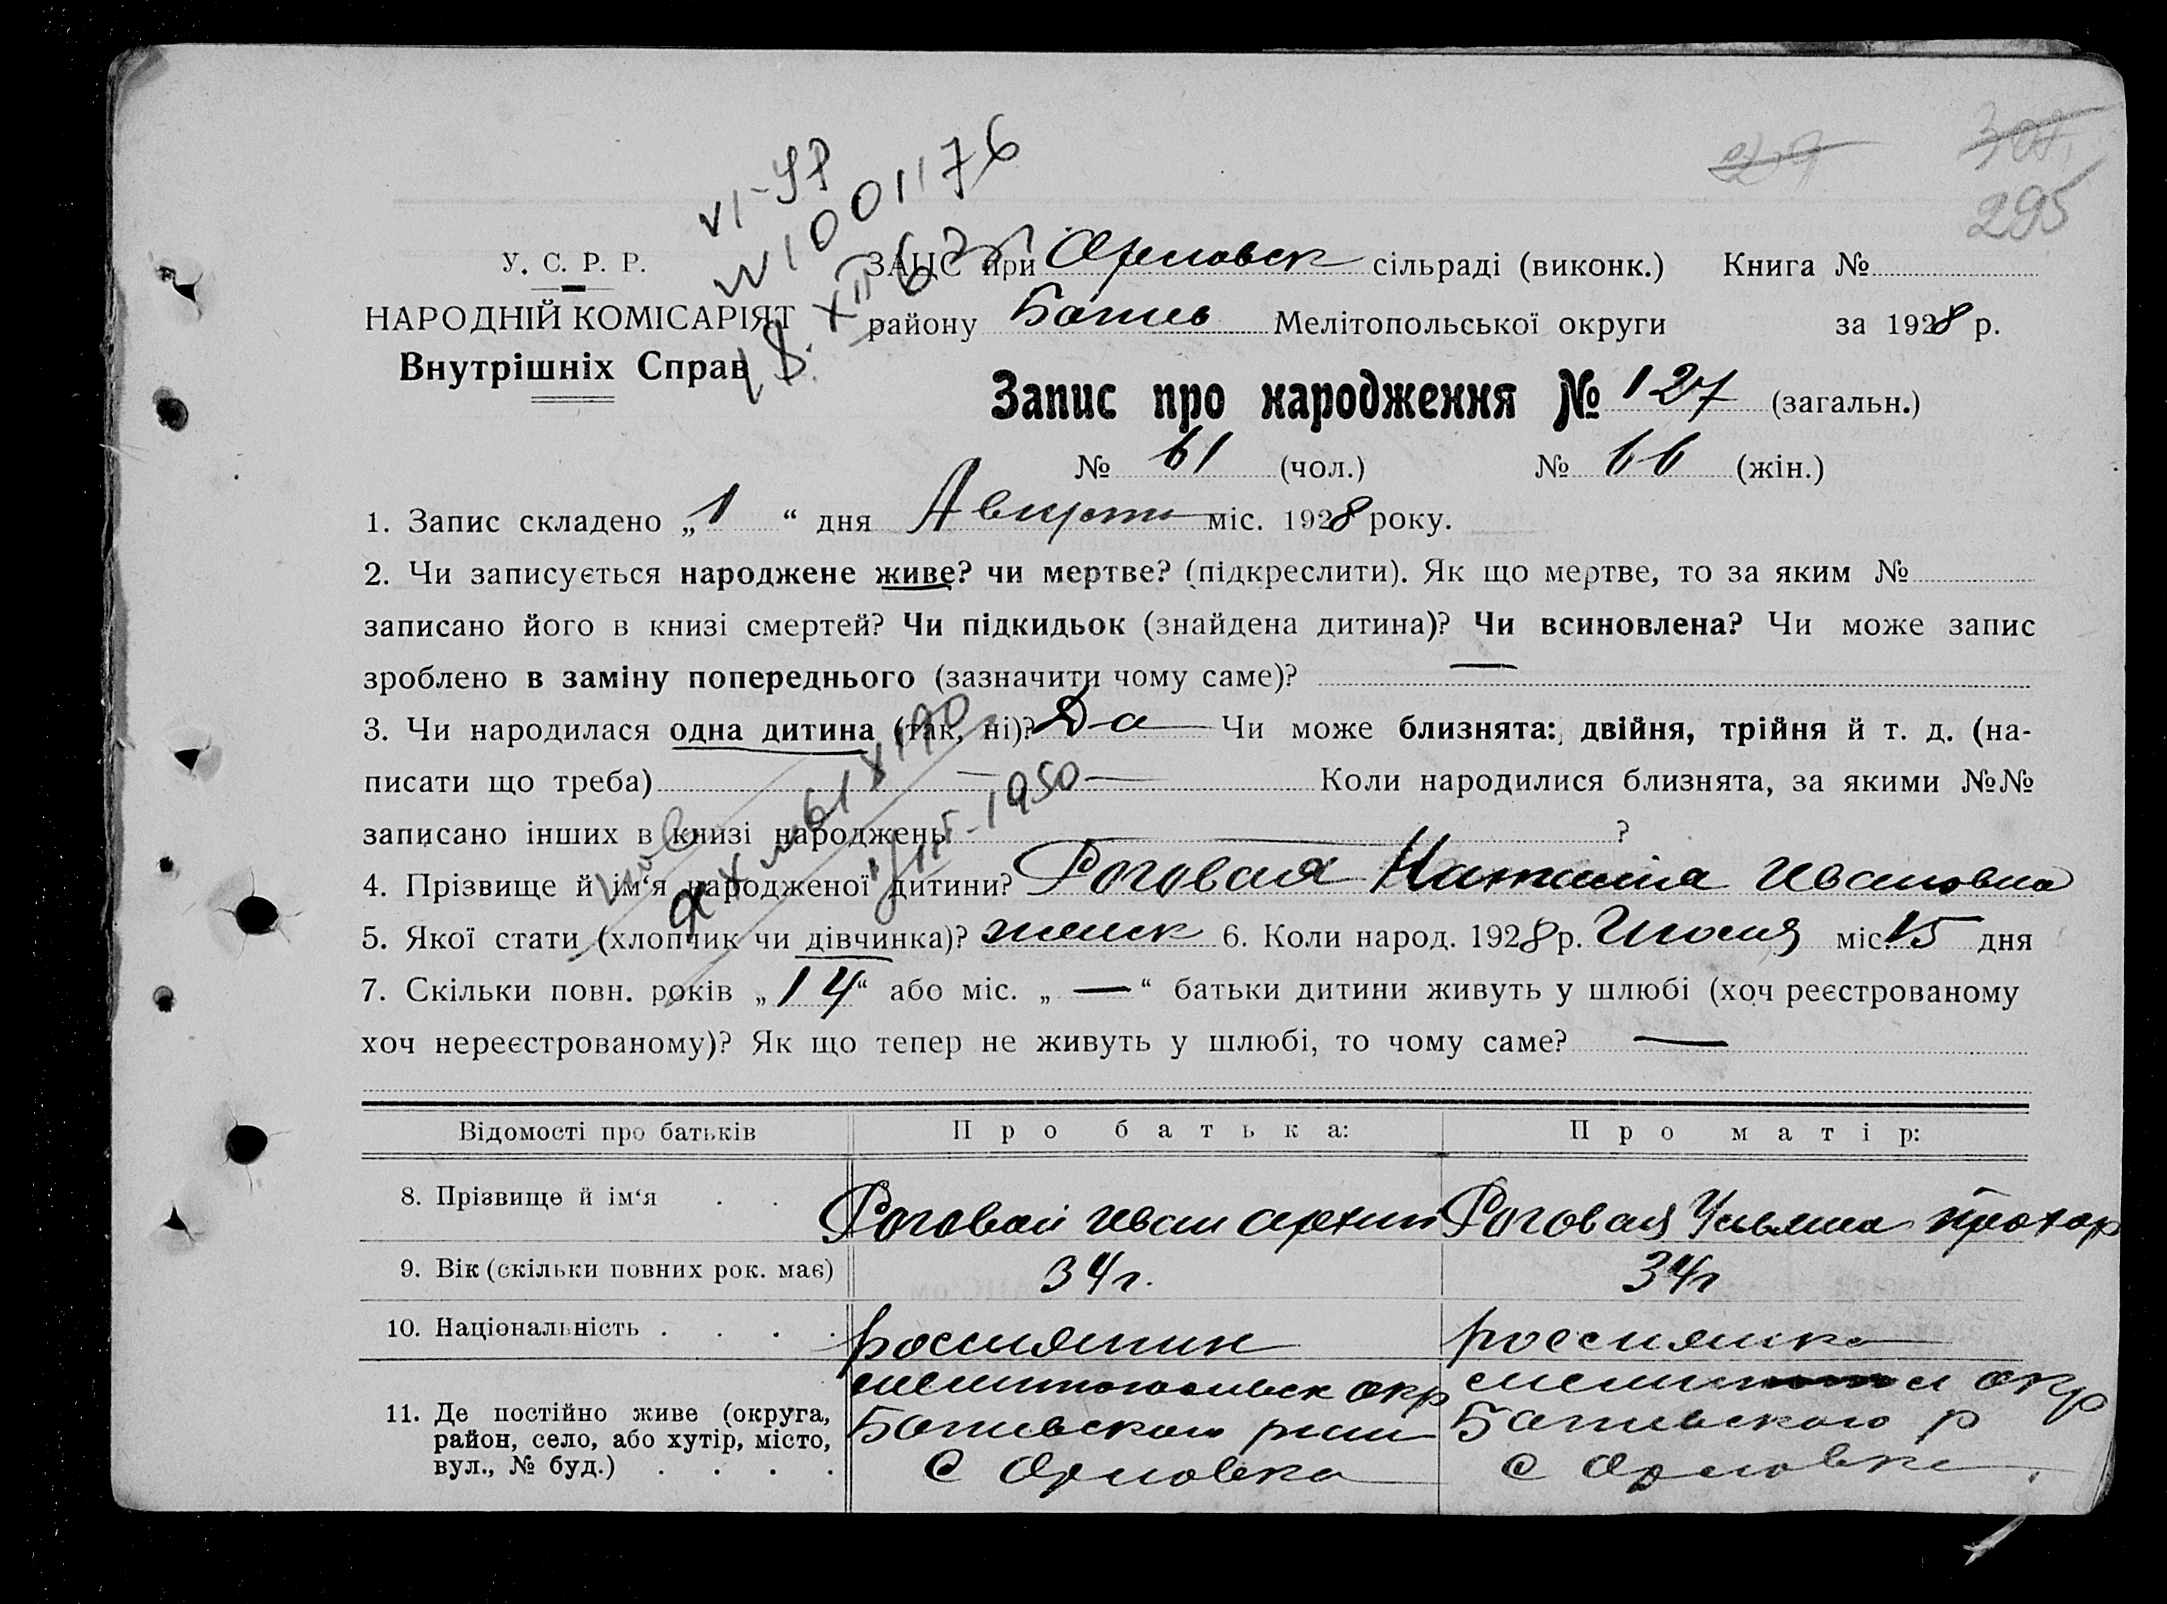 295
VI-УР
№ 001176
18. XII 62 г
У. С. Р. Р.
ЗАЦС при Орловск сільраді (виконк.) Книга №
НАРОДНІЙ КОМІСАРІЯТ
району Ботиев Мелітопольської округи за 1928 р.
Внутрішніх Справ
Запис про народження № 127 (загальн.)
№ 61 (чол.) № 66 (жін.)
1. Запис складено „1“ дня Августа міс. 1928 року.
2. Чи записується народжене живе? чи мертве? (підкреслити). Як що мертве, то за яким №
записано його в книзі смертей? Чи підкидьок (знайдена дитина)? Чи всиновлена? Чи може запис
зроблено в заміну попереднього (зазначити чому саме)? —
3. Чи народилася одна дитина (так, ні)? Да — Чи може близнята: двійня, трійня й т. д. (на-
писати що треба) — Коли народилися близнята, за якими №№
записано інших в книзі народжень — ?
4. Прізвище й ім‘я народженої дитини? Роговая Наталия Ивановна
5. Якої стати (хлопчик чи дівчинка)? женск 6. Коли народ. 1928 р. Июля міс. 15 дня
7. Скільки повн. років „14“ або міс. „—“ батьки дитини живуть у шлюбі (хоч реєстрованому
хоч нереєстрованому)? Як що тепер не живуть у шлюбі, то чому саме? —
Відомості про батьків Про батька: Про матір:
8. Прізвище й ім‘я . . Роговой Иван Архип Роговая Ульяна Прохор
9. Вік (скільки повних рок. має) 34 г. 34 г
10. Національність . . . . россиянин россиянка
11. Де постійно живе (округа, район, село, або хутір, місто, вул., № буд.) . . . .
Мелитопольск окр
Ботиевского район
С Орловка
окр
Ботиевского р
С Орловка